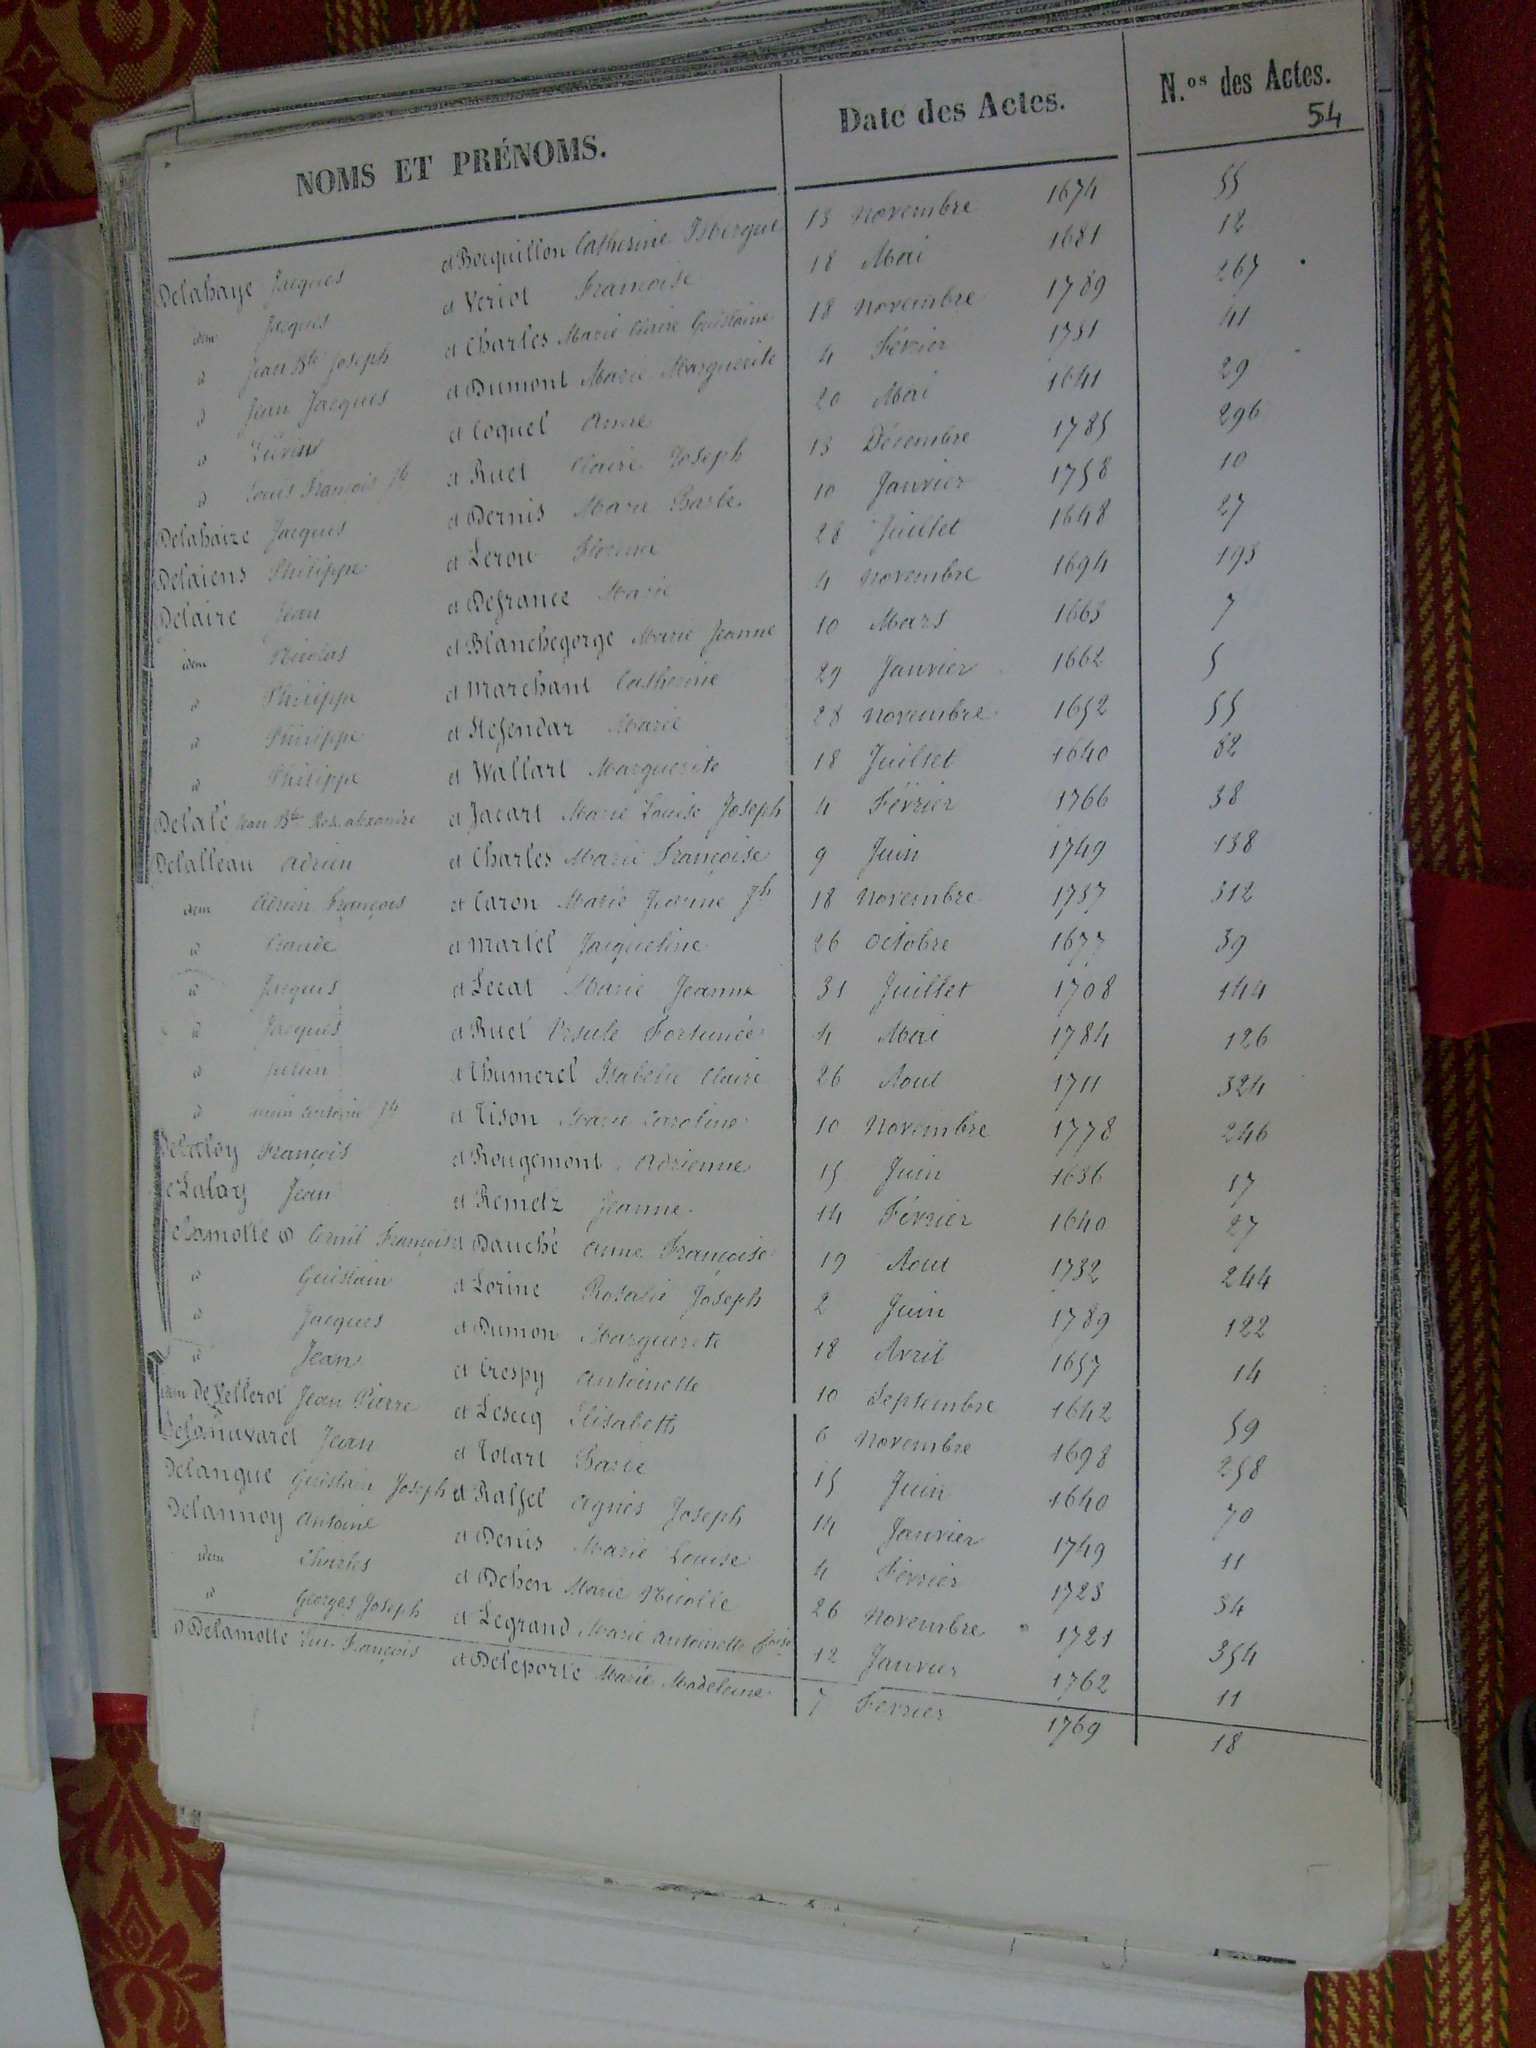 NOMS ET PRÉNOMS. Date des Actes. N.os des Actes.
54
Delahaye Jacques et Bocquillon Catherine Isbergue 13 Novembre 1674 55
idem Jacques et Veriot Francoise 18 Mai 1681 12
id Jean Bte Joseph et Charles Marie Claire Guislaine 18 Novembre 1789 267
id Jean Jacques et Dumont Marie Marguerite 4 Février 1751 41
id et Coquel Anne 20 Mai 1641 29
id Louis François Jh et Ruet Claire Joseph 13 Décembre 1785 296
Delahaize Jacques et Dernis Marie Barbe 10 Janvier 1758 10
Delaiens Philippe et Lerou 28 Juillet 1648 27
Delaire Jean et Defrance Marie 4 Novembre 1694 193
idem Nicolas et Blanchegorge Marie Jeanne 10 Mars 1663 7
id Philippe et Marchant Catherine 29 Janvier 1662 5
id Philippe et Stefendar Marie 28 Novembre 1652 55
id Philippe et Wallart Marguerite 18 Juillet 1640 82
Delalé Jean Bte alexandre et Jacart Marie Louise Joseph 4 Février 1766 38
Delalleau Adrien et Charles Marie Françoise 9 Juin 1749 138
idem Adrien François et Caron Marie Jeanne Jh 18 Novembre 1737 312
id Claude et Martel Jacqueline 26 Octobre 1677 39
id Jacques et Lecat Marie Jeanne 31 Juillet 1708 144
id Jacques et Ruet Ursule Fortunée 4 Mai 1784 126
id et Thumerel Isabelle Claire 26 Aout 1711 324
id antoine Jh et Tison Marie Caroline 10 Novembre 1778 246
Delaloy François et Rougemont Adrienne 15 Juin 1636 17
DeLalay Jean et Remetz Jeanne 14 Février 1640 27
Delamotte Cornil François et Dauché Anne Françoise 19 Aout 1732 244
id Guislain et Lorine Rosalie Joseph 2 Juin 1789 122
id Jacques et Dumon Marguerite 18 Avril 1657 14
id Jean et Crespy Antoinette 10 Septembre 1642 59
idem De Vellerot Jean Pierre et Lesecq Elisabeth 6 Novembre 1698 258
Delanavaret Jean et Totart Barbe 15 Juin 1640 70
Delangue Guislain Joseph et Ralfel Agnès Joseph 14 Janvier 1749 11
Delannoy Antoine et Denis Marie Louise 4 Février 1723 34
idem Charles et Dehen Marie Nicolle 26 Novembre 1721 354
id Georges Joseph et Legrand Marie Antoinette 12 Janvier 1762 11
Delamotte Luc François et Deleporte Marie Madeleine 7 Février 1769 18